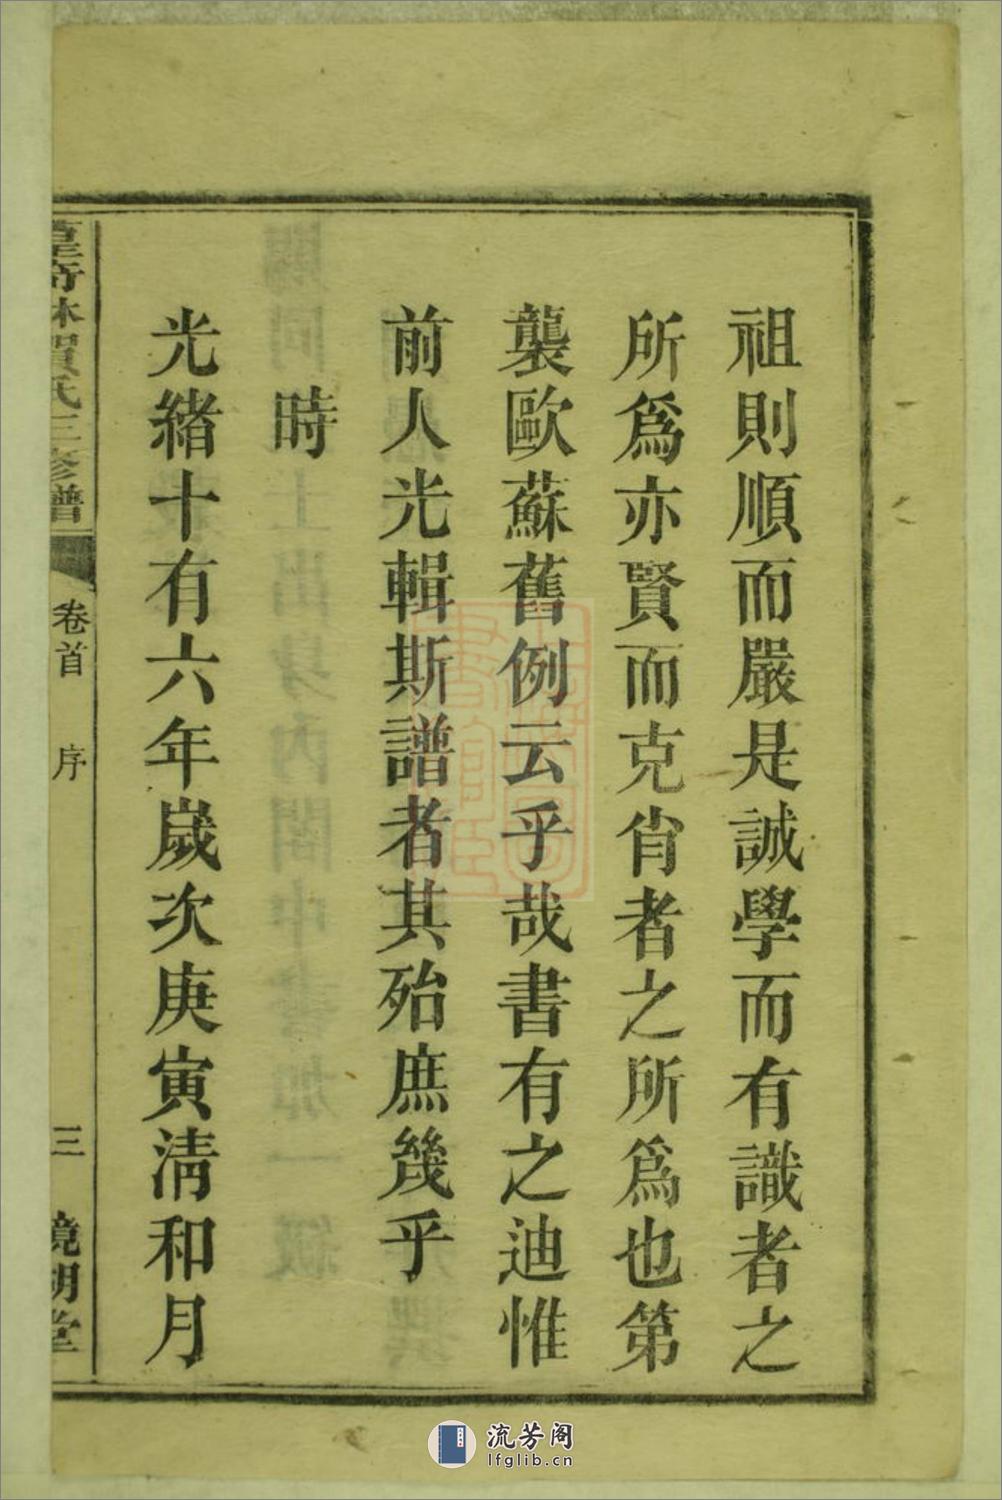 祖則順而嚴是誠學而有識者之
所爲亦賢而克肖者之所爲也第
襲歐蘇舊例云乎哉書有之迪惟
前人光輯斯譜者其殆庶幾乎
時
光緒十有六年歲次庚寅清和月
賀氏三修譜
卷首
序
三
鏡湖堂
流芳阁
lfglib.cn